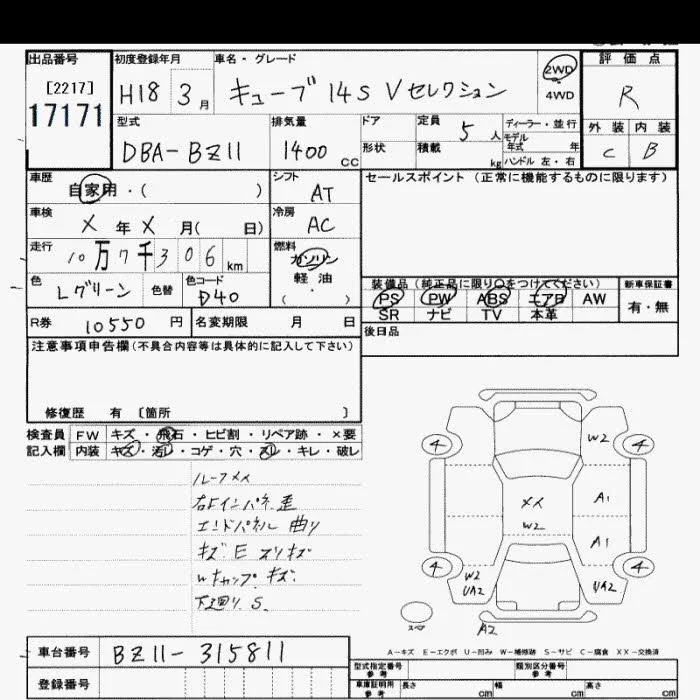 出品番号 初度登録年月 車名・グレード 2WD 評価点
[2217] H18 3月 キューブ 14S Vセレクション 4WD R
17171 型式 排気量 ドア 定員 5人 ディーラー・並行 外装 内装
モデル
DBA-BZ11 1400cc 形状 積載 kg 年式 年 C B
ハンドル 左・右
車歴 自家用・( ) シフト AT セールスポイント (正常に機能するものに限ります)
車検 X年X月( 日) 冷房 AC
走行 10万7千306km 燃料 ガソリン
軽油
( )
色 Lグリーン 色替 色コード D40 装備品(純正品に限り○をつけてください) 新車保証書
PS PW ABS エアB AW 有・無
SR ナビ TV 本革
R券 10550円 名変期限 月 日 後日品
注意事項申告欄(不具合内容等は具体的に記入して下さい)
修復歴 有 〔箇所 〕
検査員 FW キズ・飛石・ヒビ割・リペア跡・×要
記入欄 内装 キズ・汚レ・コゲ・穴・スレ・キレ・破レ
ルーフXX
エンドパネル 曲り
キズ E スリキズ
Wキャップ キズ
下廻り S.
W2
4 4
XX A1
W2
A1
4 4
W2 UA2
UA2
スペア A2
A-キズ E-エクボ U-凹み W-補修跡 S-サビ C-腐食 XX-交換済
車台番号 BZ11-315811
型式指定番号 類別区分番号
参考 参考
登録番号 車庫証明用 長さ cm 幅 cm 高さ cm
参考